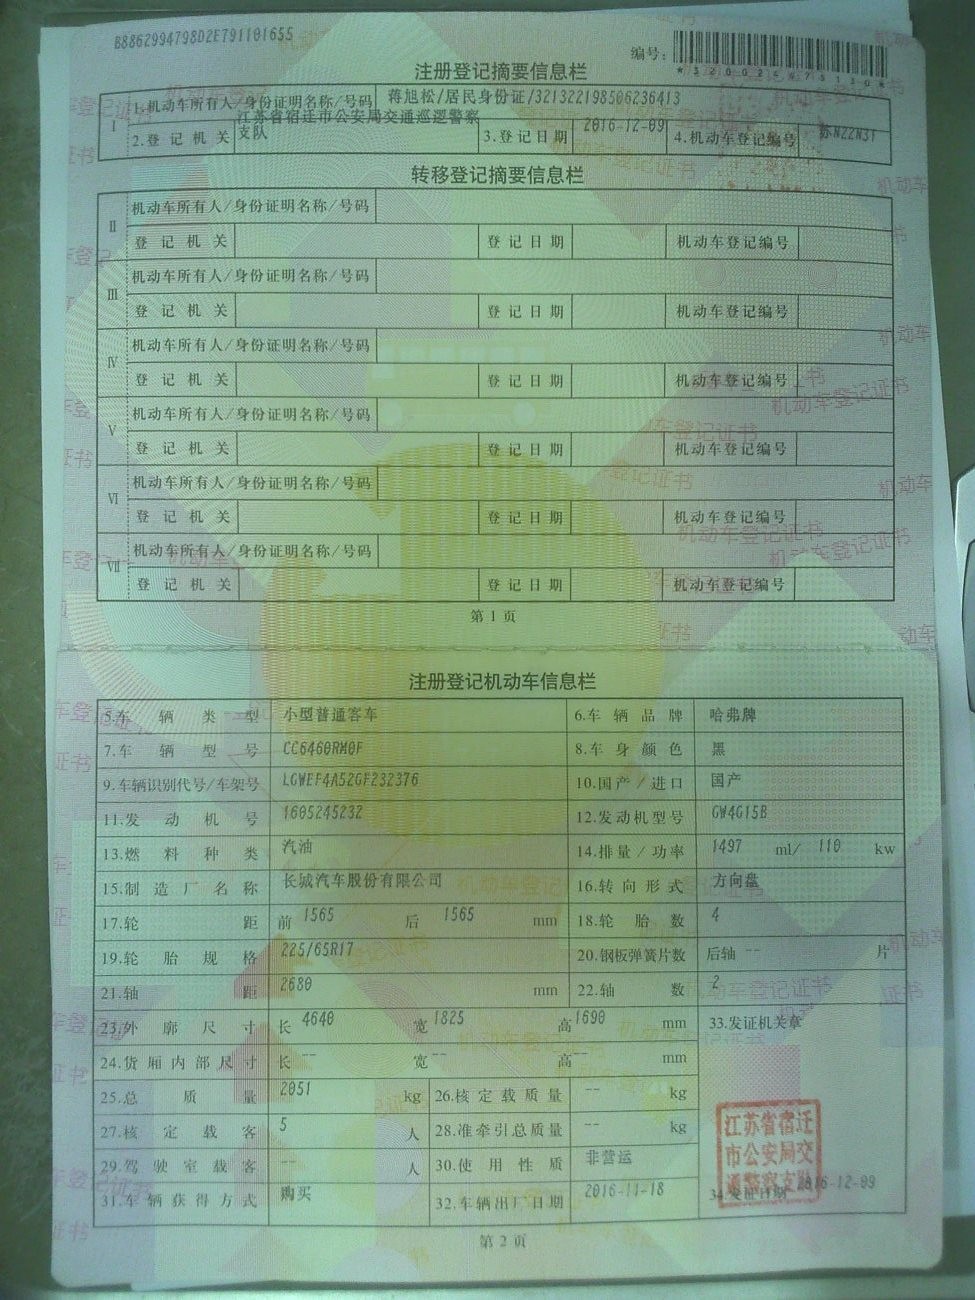 B8862994798D2E791101655
编号：
*320024975130*
注册登记摘要信息栏
I
1.机动车所有人/身份证明名称/号码 蒋旭松/居民身份证/321322198506236413
2.登记机关 江苏省宿迁市公安局交通巡逻警察支队 3.登记日期 2016-12-09 4.机动车登记编号 苏N22N31
转移登记摘要信息栏
II
机动车所有人/身份证明名称/号码
登记机关 登记日期 机动车登记编号
III
机动车所有人/身份证明名称/号码
登记机关 登记日期 机动车登记编号
IV
机动车所有人/身份证明名称/号码
登记机关 登记日期 机动车登记编号
V
机动车所有人/身份证明名称/号码
登记机关 登记日期 机动车登记编号
VI
机动车所有人/身份证明名称/号码
登记机关 登记日期 机动车登记编号
VII
机动车所有人/身份证明名称/号码
登记机关 登记日期 机动车登记编号
第1页
注册登记机动车信息栏
5.车辆类型 小型普通客车 6.车辆品牌 哈弗牌
7.车辆型号 CC6460RM0F 8.车身颜色 黑
9.车辆识别代号/车架号 LGWEF4A52GF232376 10.国产/进口 国产
11.发动机号 1605245232 12.发动机型号 GW4G15B
13.燃料种类 汽油 14.排量/功率 1497 ml/ 110 kw
15.制造厂名称 长城汽车股份有限公司 16.转向形式 方向盘
17.轮距 前 1565 后 1565 mm 18.轮胎数 4
19.轮胎规格 225/65R17 20.钢板弹簧片数 后轴 -- 片
21.轴距 2680 mm 22.轴数 2
23.外廓尺寸 长 4640 宽 1825 高 1690 mm 33.发证机关章
24.货厢内部尺寸 长 -- 宽 -- 高 -- mm
25.总质量 2051 kg 26.核定载质量 -- kg
27.核定载客 5 人 28.准牵引总质量 -- kg
29.驾驶室载客 -- 人 30.使用性质 非营运
31.车辆获得方式 购买 32.车辆出厂日期 2016-11-18
江苏省宿迁
市公安局交
通警察支队
34.发证日期 2016-12-09
第2页